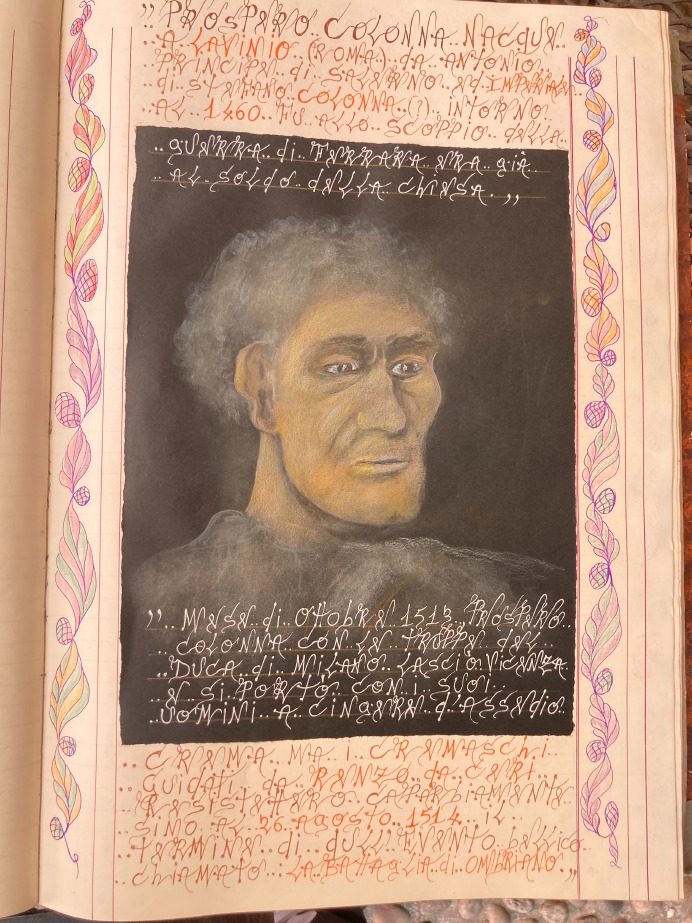 ,, PROSPERO.. COLONNA.. NACQUE..
.. A.. LAVINIO.. (ROMA.) DA.. ANTONIO..
PRINCIPE.. di.. SALERNO.. Ed.. IMPERIALE..
di.. STEFANO.. COLONNA..(?).. INTORNO..
.. AL.. 1460.. FU.. ALLO.. SCOPPIO.. dELLA..
.. gUERRA.. di.. FERRARA.. ERA.. giÀ..
.. AL.. SOLdO.. dELLA.. ChiESA.. ,,
,, .. MESE.. di.. OttObRE.. 1513.. PROSPERO..
.. COLONNA.. CON.. LE.. TRUPPE.. dEL..
.. DUCA.. di.. MiLANO.. LASCiÒ.. ViCENZA..
.. E.. Si.. PORTÒ.. CON.. i.. SUOi..
.. UOMiNi.. A.. CiNgERE.. d'ASSEdiO..
.. CREMA.. MA.. i.. CREMASChi..
.. GUidAti.. dA.. RENZO.. dA.. CERi..
.. RESiStEttERO.. CAPARbiAMENtE..
SiNO.. AL.. 26.. AgOStO.. 1514.. iL..
.. tERMiNE.. di.. qUELL'EVENtO.. bELLiCO..
.. ChiAMAtO.. LA.. bAttAgLiA.. di.. OMbRiANO.. ,,